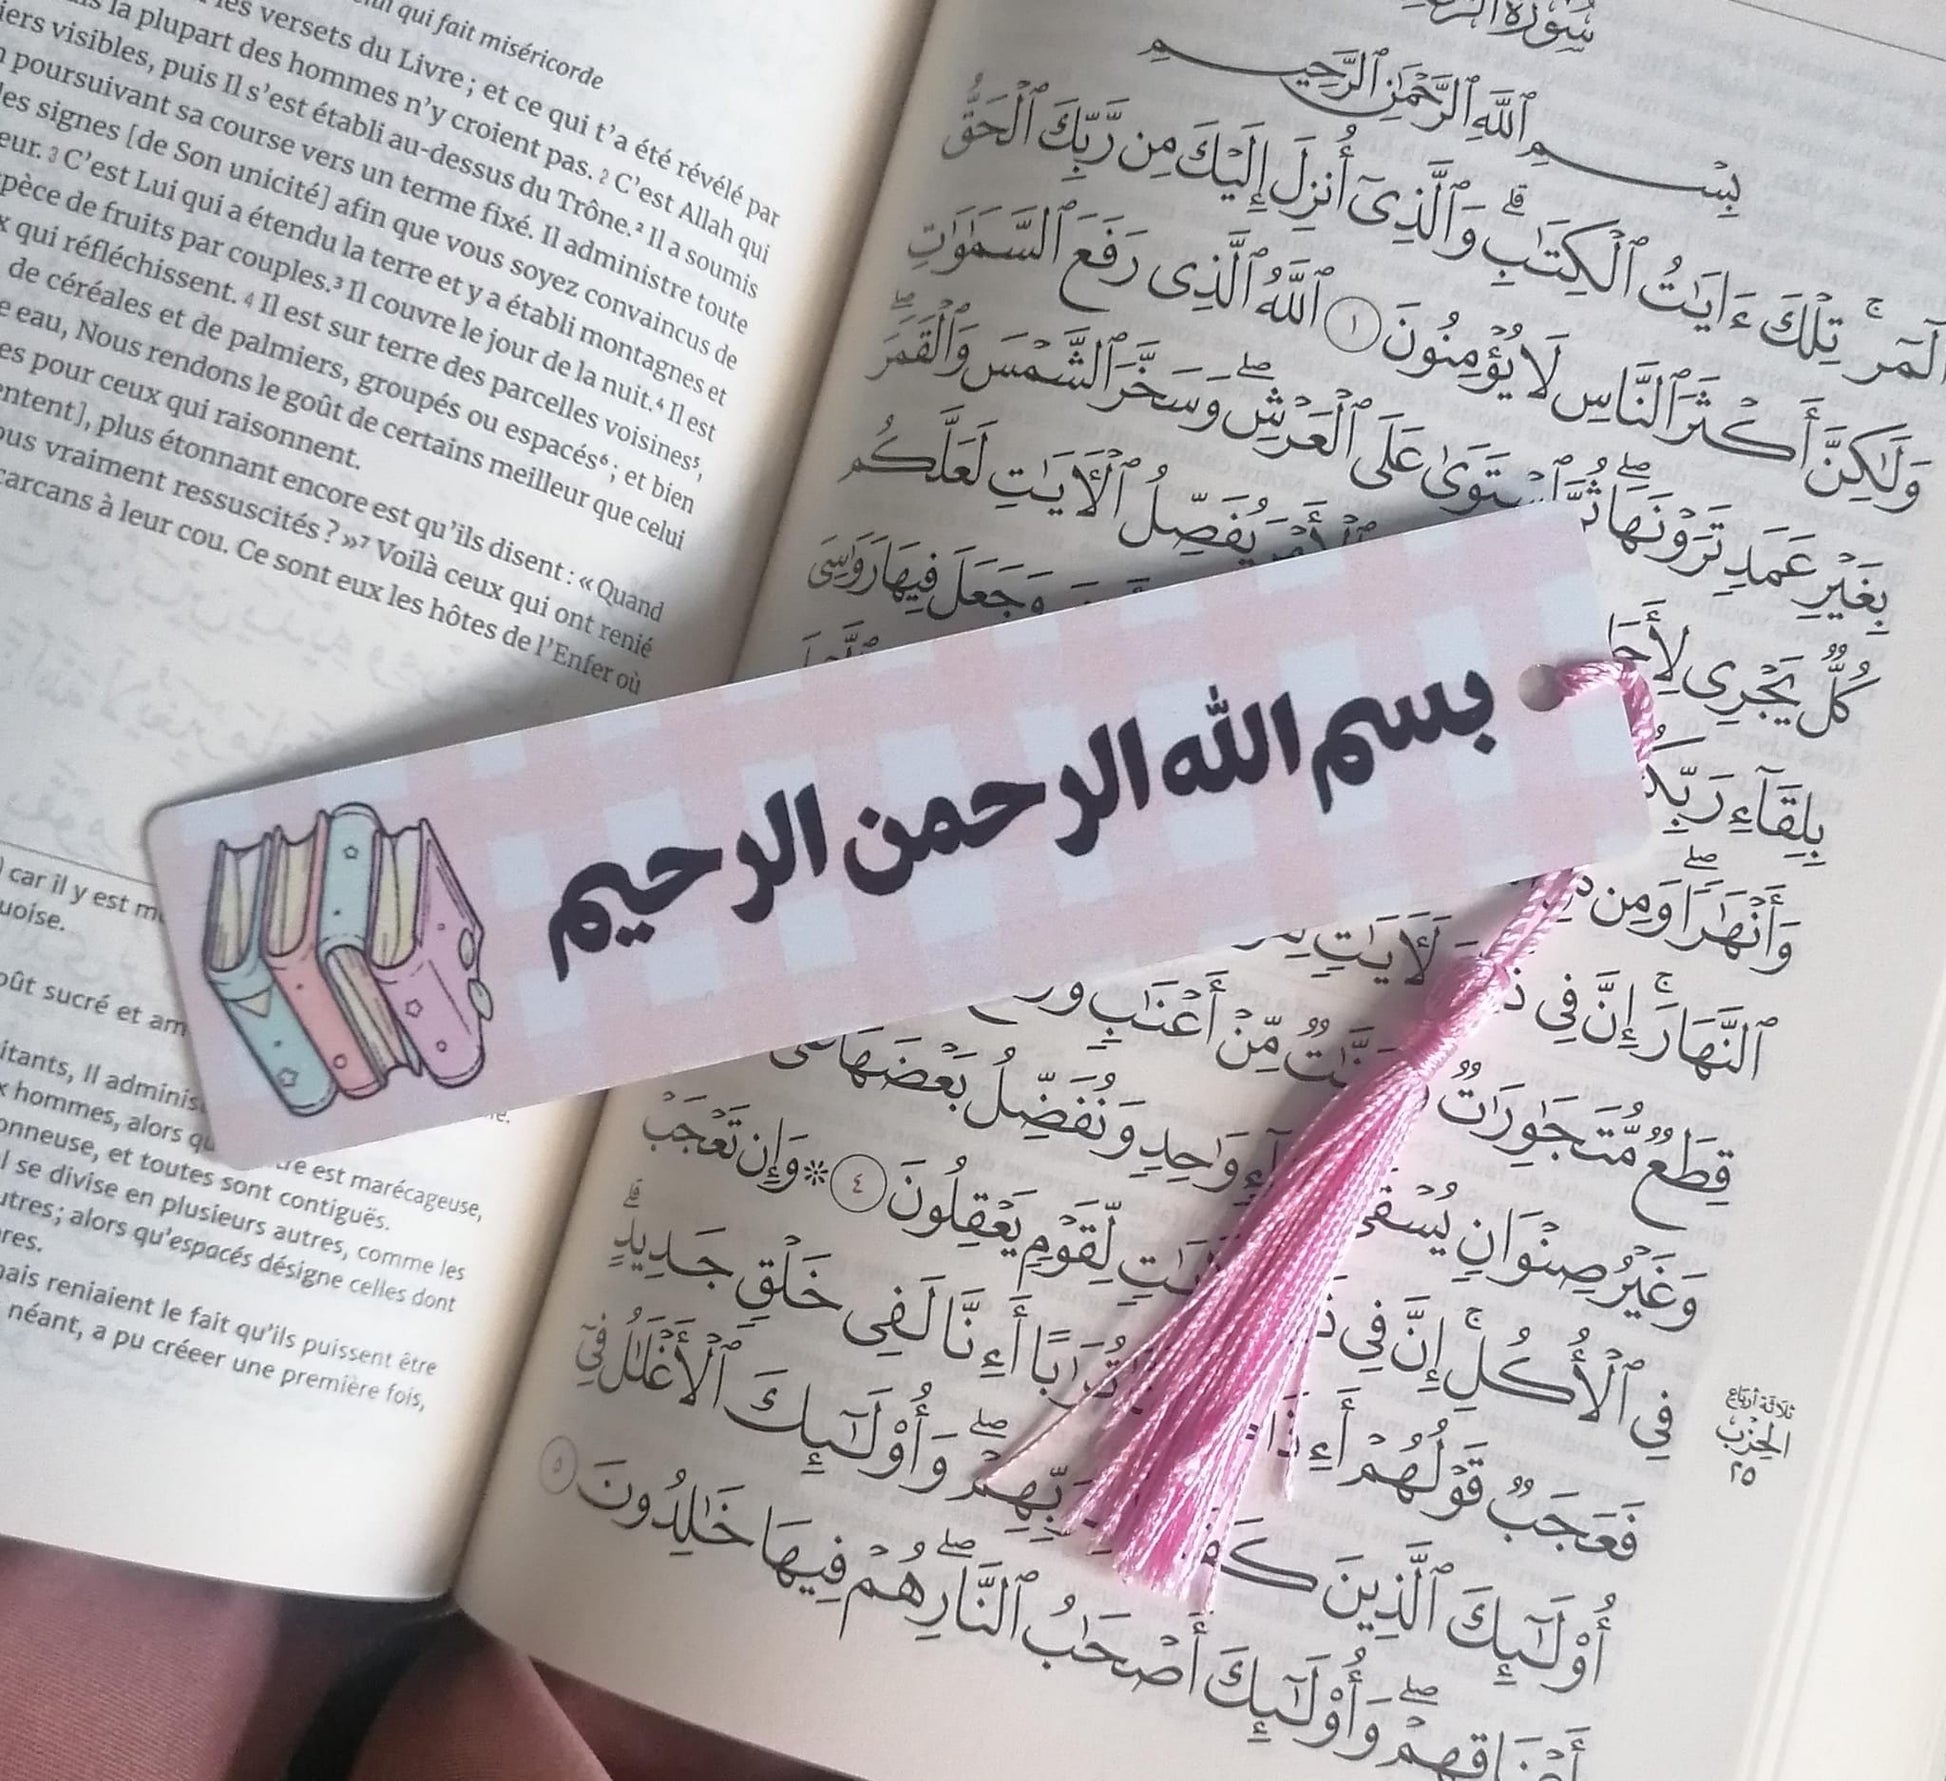 qui fait miséricorde
les versets du Livre ; et ce qui t’a été révélé par
la plupart des hommes n’y croient pas. 2 C’est Allah qui
visibles, puis Il s’est établi au-dessus du Trône.² Il a soumis
poursuivant sa course vers un terme fixé. Il administre toute
les signes [de Son unicité] afin que vous soyez convaincus de
3 C’est Lui qui a étendu la terre et y a établi montagnes et
de fruits par couples.³ Il couvre le jour de la nuit.⁴ Il est
qui réfléchissent. 4 Il est sur terre des parcelles voisines⁵,
de céréales et de palmiers, groupés ou espacés⁶ ; et bien
eau, Nous rendons le goût de certains meilleur que celui
pour ceux qui raisonnent.
plus étonnant encore est qu’ils disent : « Quand
vraiment ressuscités ? »⁷ Voilà ceux qui ont renié
carcans à leur cou. Ce sont eux les hôtes de l’Enfer où
car il y est
goût sucré et
Il
hommes, alors
est marécageuse,
et toutes sont contiguës.
se divise en plusieurs autres, comme les
alors qu’espacés désigne celles dont
reniaient le fait qu’ils puissent être
néant, a pu créeer une première fois,
بِسْمِ ٱللَّهِ ٱلرَّحْمَٰنِ ٱلرَّحِيمِ
الٓمٓر ۚ تِلْكَ ءَايَٰتُ ٱلْكِتَٰبِ ۗ وَٱلَّذِىٓ أُنزِلَ إِلَيْكَ مِن رَّبِّكَ ٱلْحَقُّ
وَلَٰكِنَّ أَكْثَرَ ٱلنَّاسِ لَا يُؤْمِنُونَ ١ ٱللَّهُ ٱلَّذِى رَفَعَ ٱلسَّمَٰوَٰتِ
بِغَيْرِ عَمَدٍ تَرَوْنَهَا ۖ ثُمَّ ٱسْتَوَىٰ عَلَى ٱلْعَرْشِ ۖ وَسَخَّرَ ٱلشَّمْسَ وَٱلْقَمَرَ ۖ
كُلٌّ يَجْرِى ٱلْأَمْرَ يُفَصِّلُ ٱلْءَايَٰتِ لَعَلَّكُم
بِلِقَآءِ وَجَعَلَ فِيهَا رَوَٰسِىَ
وَأَنْهَٰرًا ۖ وَمِن
ٱلنَّهَارَ ۚ إِنَّ فِى لَءَايَٰتٍ
قِطَعٌ مُّتَجَٰوِرَٰتٌ مِّنْ أَعْنَٰبٍ
وَغَيْرُ صِنْوَانٍ وَٰحِدٍ وَنُفَضِّلُ بَعْضَهَا
فِى ٱلْأُكُلِ ۚ إِنَّ فِى لِّقَوْمٍ يَعْقِلُونَ ٤ ۞ وَإِن تَعْجَبْ
فَعَجَبٌ قَوْلُهُمْ أَءِذَا تُرَٰبًا أَءِنَّا لَفِى خَلْقٍ جَدِيدٍ ۗ
أُو۟لَٰٓئِكَ ٱلَّذِينَ بِرَبِّهِمْ ۖ وَأُو۟لَٰٓئِكَ ٱلْأَغْلَٰلُ فِىٓ
أَعْنَاقِهِمْ ۖ وَأُو۟لَٰٓئِكَ أَصْحَٰبُ ٱلنَّارِ ۖ هُمْ فِيهَا خَٰلِدُونَ ٥
ثلاثة أرباع
الحزب
٢٥
بسم الله الرحمن الرحيم